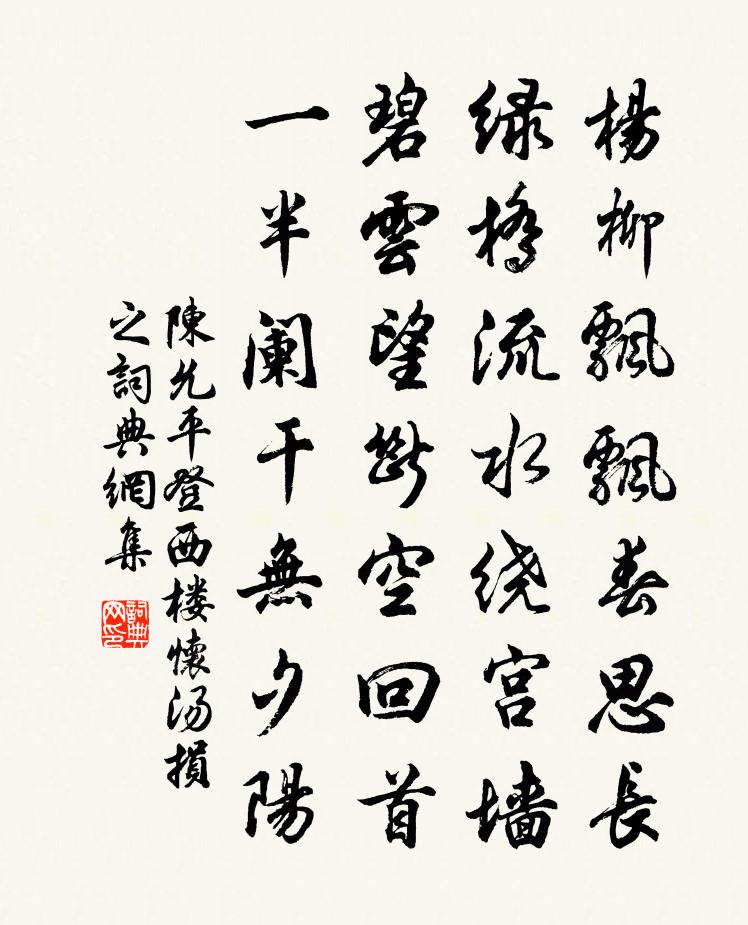 楊柳飄飄春思長
绿橋流水绕宫墙
碧雲望斷空回首
一半阑干無夕陽
陳允平登西楼懷汤損
之詞典網集
詞典网印